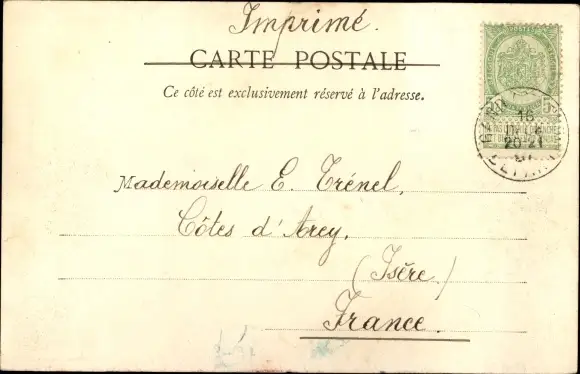 Imprimé.
CARTE POSTALE
Ce côté est exclusivement réservé à l'adresse.
18
20-21
Mademoiselle E. Trénel,
Côtes d'Arey,
(Isère.)
France.